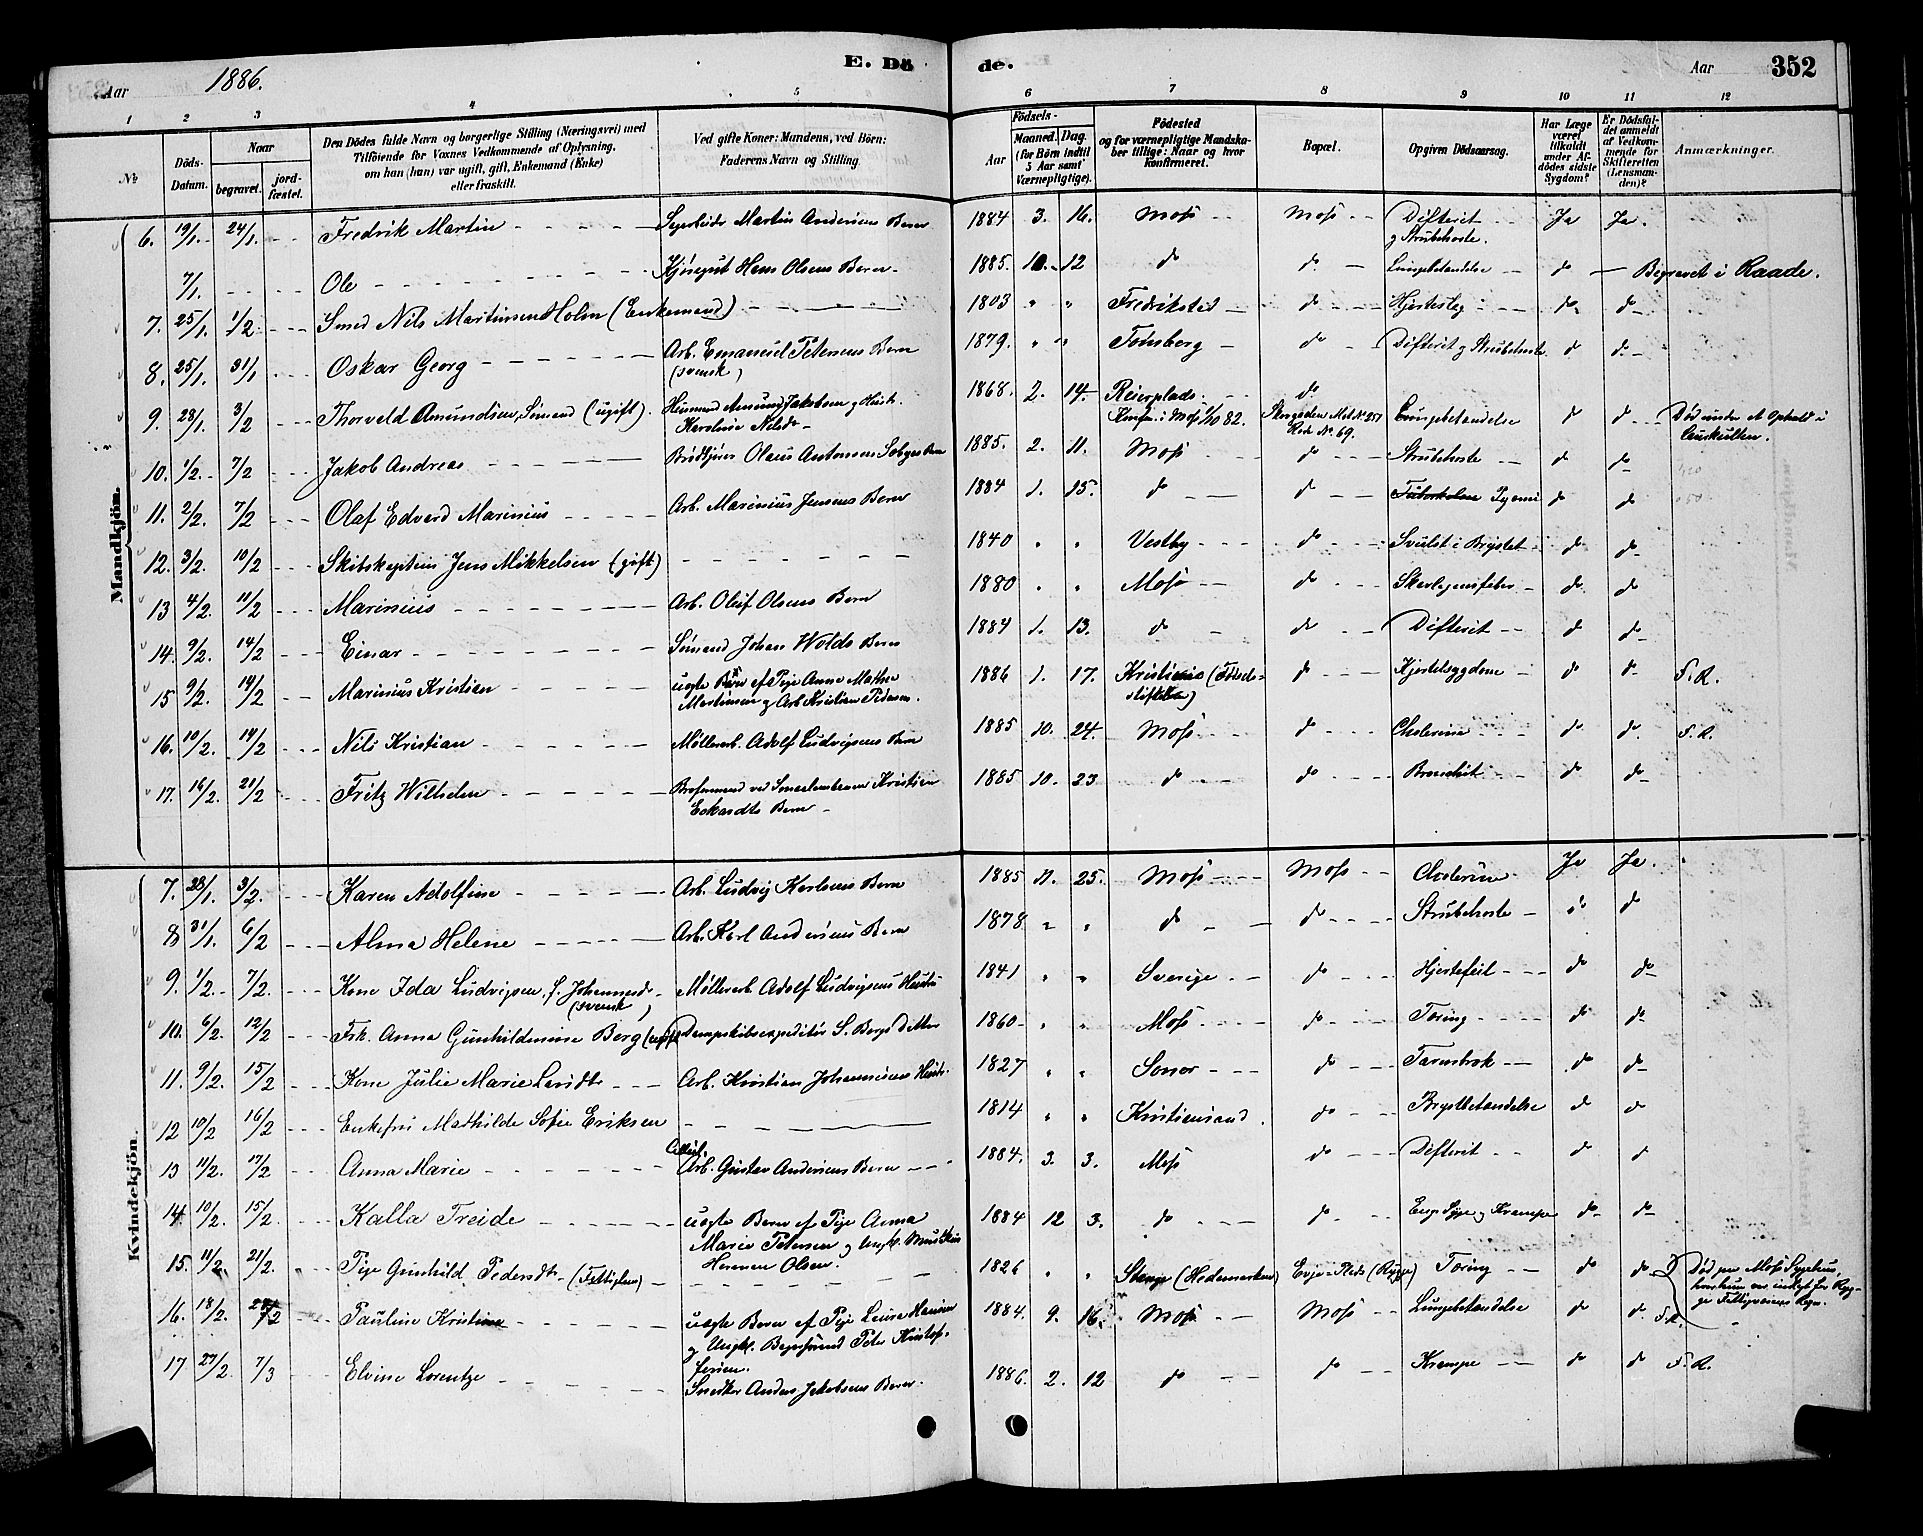 Aar 1886. E. Dö de. Aar 352
1 2 3 4 5 6 7 8 9 10 11 12
№ Döds-Datum. Naar begravet. jordfæstet. Den Dödes fulde Navn og borgerlige Stilling (Næringsvei) med Tilföiende for Voxnes Vedkommende af Oplysning, om han (hun) var ugift, gift, Enkemand (Enke) eller fraskilt. Ved gifte Koner: Mandens, ved Börn: Faderens Navn og Stilling. Födsels- Aar Maaned. Dag. (for Börn indtil 5 Aar samt Værnepligtige). Födested og for værnepligtige Mandskaber tillige: Naar og hvor konfirmeret. Bopæl. Opgiven Dödsaarsag. Har Læge været tilkaldt under Afdödes sidste Sygdom? Er Dödsfaldet anmeldt af Vedkommende for Skifteretten (Lensmanden)? Anmærkninger.
Mandkjön.
6. 19/1. 24/1. Fredrik Martin Martin Andersens Barn 1884 3. 16. Moss Moss Difterit Ja Ja.
og Strubehoste.
7/1. Ole Kjøregut Hans Olsens Barn 1885. 10. 12 do do Lungebetændelse do Begravet i Raade.
7. 25/1. 1/2. Smed Nils Martinsen Holm (Enkemand) 1803 " " Fredriksted do Hjerteslag do do
8. 25/1. 31/1 Oskar Georg Arb. Emanuel Petersens Barn 1879. " " Tønsberg do Difterit og Strubehoste do do
(svensk)
9. 28/1. 3/2 Thorvald Amundsen, Sømand (ugift). Husmand Amund Jakobsen og Hustr. 1868. 2. 14. Reierplads. do Lungebetændelse do do Død under et Ophold i
Karoline Nilsdr Konf. i Moss 1/10 82. No 69.
10. 1/2. 7/2 Jakob Andreas Olaus Antonsen Barn 1885. 2. 11. Moss do Strubehoste do do
11. 2/2. 7/2 Olaf Edvard Marinius Arb. Marinius Jensens Barn 1884 1. 15. do do Pyæmi do do
12. 3/2. 10/2 Skibskaptein Jens Mikkelsen (gift) 1840 " " Vestby do Svulst i Brystet do do
13 4/2. 11/2 Marinius Arb. Oluf Olsens Barn 1880 " " Moss do Skarlagensfeber do do
14. 9/2. 14/2 Einar Sømand Johan Wolds Barn 1884 1. 13. do do Difterit do do
15 9/2. 14/2 Marinius Kristian uægte Barn af Pige Anna Mathea 1886 1. 17. Kristiania (Fødsels- do Kjertelsygdom do do F. R.
Martinsen og Arb. Kristian Pedersen. stiftelsen)
16. 10/2. 14/2 Nils Kristian Møllerarb. Adolf Ludvigsens Barn 1885 10. 24. Moss do Cholerine do do F. R.
17. 16/2. 21/2 Fritz Wilhelm Kristian 1885 10. 23 do do Bronchit do do
Eckardts Barn
Kvindekjön.
7. 28/1. 3/2. Karen Adolfine Arb. Ludvig Karlsens Barn 1885 11. 25. Moss Moss Cholerine Ja Ja.
8 31/1. 6/2 Alma Helene Arb. Karl Andersens Barn 1878 " " do do Strubehoste do do
9. 1/2. 7/2. Kone Ida Ludvigsen, f. Johannesdr Møllerarb. Adolf Ludvigsens Hustru 1841 " " Sverige do Hjertefeil do do
(svensk)
10. 6/2. 12/2 Frk. Anna Gunhildmine Berg (ugift) Dampskibsexpeditør S. Bergs Datter 1860 " " Moss do Tæring do do
11. 9/2. 15/2 Kone Julie Marie Arb. Kristian Johannesens Hustr. 1827 " " Soner do do do
12 10/2 16/2 Enkefru Mathilde Sofie Eriksen 1814 " " Kristiansand. do Brystbetændelse do do
13 11/2. 17/2 Anna Marie Arb. Gustav Andersens Barn 1884. 3. 3. Moss do Difterit do do
14 10/2. 15/2. Kalla Freide uægte Barn af Pige Anna 1884 12 3. do do Krampe do do
Marie Petersen og Ungk.
Herman Olsen.
15. 11/2. 21/2. Pige Gunhild Pedersdtr (Fattiglem) 1826 " " Stange (Hedemarken) (Rygge) Tæring do do Død paa Moss Sygehus,
hvor hun var indlagt for Ryg-
ge Fattigvæsens Regn.
16. 18/2. 28/2 Pauline Kristine uægte Barn af Pige Hansen 1884. 9. 16. Moss Moss Lungebetændelse do do F. R.
og Ungk. Peter Kristof-
fersen.
17 27/2 7/3 Elvine Lorentze Snedker Anders Jakobsens Barn. 1886. 2. 12 do do Krampe do do F. R.